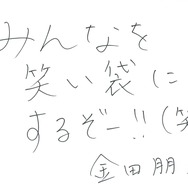 みんなを
笑い袋に
するぞー!!(笑
金田朋